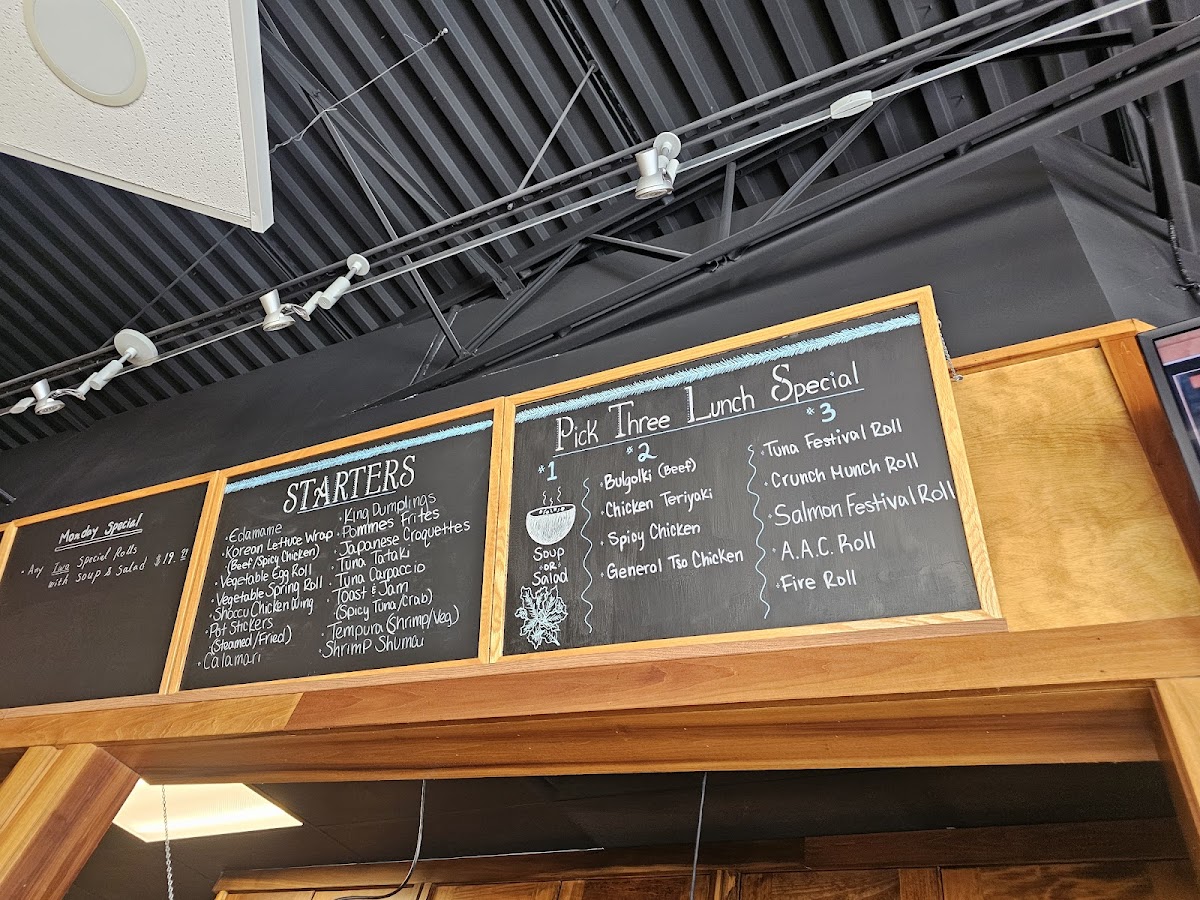 Monday Special
• Any Two Special Rolls
with soup & Salad $19.99
STARTERS
• Edamame
• Korean Lettuce Wrap
(Beef/Spicy Chicken)
• Vegetable Egg Roll
• Vegetable Spring Roll
• Shaccu Chicken Wing
• Pot Stickers
(Steamed/Fried)
• Calamari
• King Dumplings
• Pommes Frites
• Japanese Croquettes
• Tuna Tataki
• Tuna Carpaccio
• Toast & Jam
(Spicy Tuna/Crab)
• Tempura (Shrimp/Veg)
• Shrimp Shumai
Pick Three Lunch Special
*1
Soup
"OR"
Salad
*2
• Bulgolki (Beef)
• Chicken Teriyaki
• Spicy Chicken
• General Tso Chicken
*3
• Tuna Festival Roll
• Crunch Munch Roll
• Salmon Festival Roll
• A.A.C. Roll
• Fire Roll